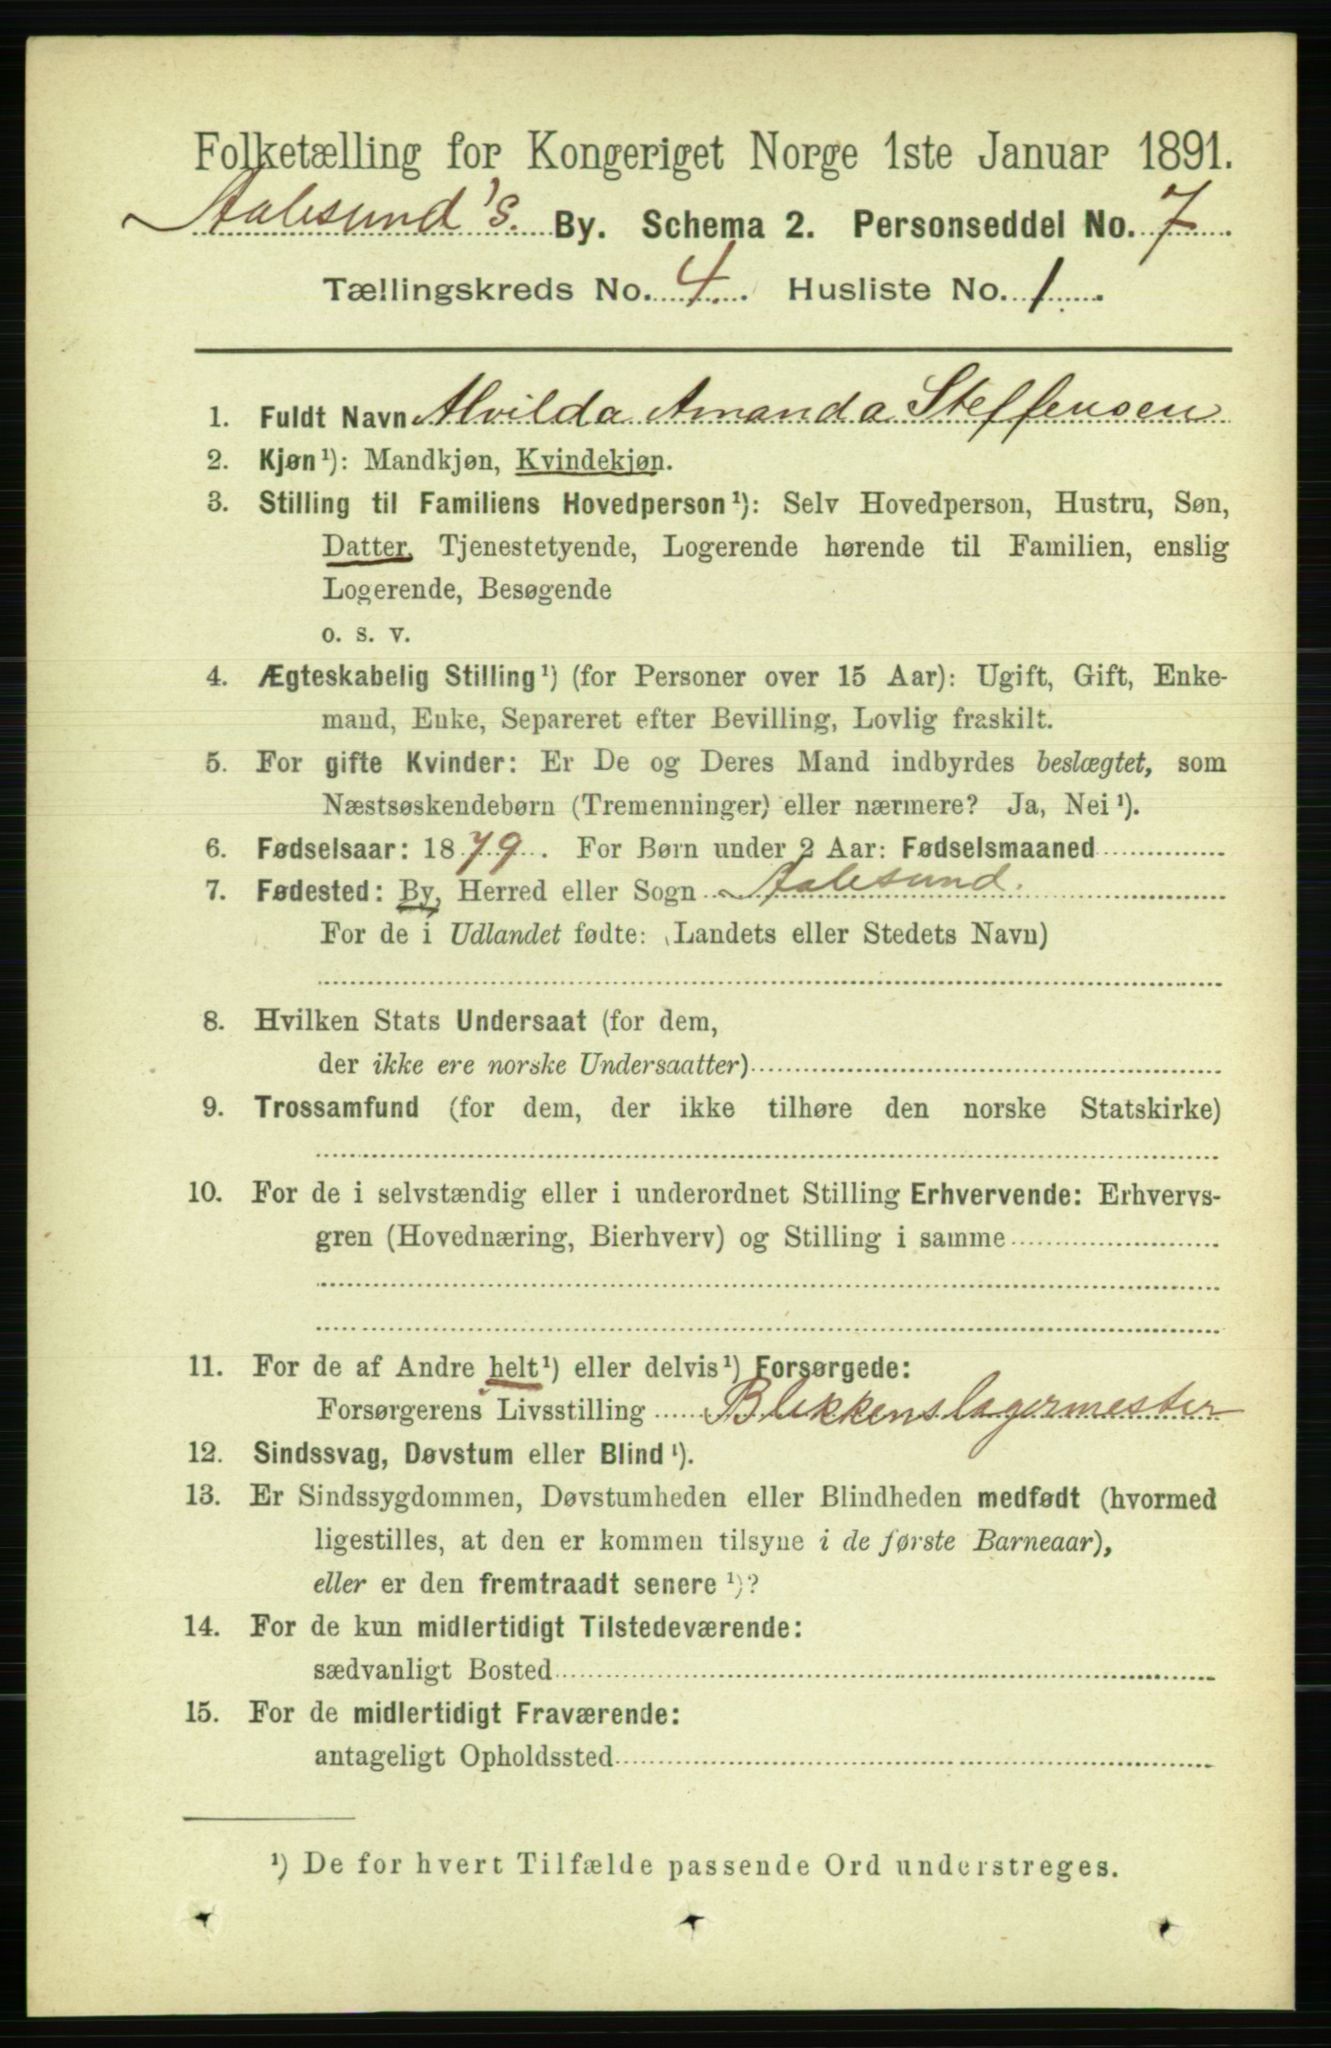 Folketælling for Kongeriget Norge 1ste Januar 1891.
Aalesund's By. Schema 2. Personseddel No. 7
Tællingskreds No. 4. Husliste No. 1
1. Fuldt Navn Alvilda Amanda Steffensen
2. Kjøn¹): Mandkjøn, Kvindekjøn.
3. Stilling til Familiens Hovedperson¹): Selv Hovedperson, Hustru, Søn,
Datter, Tjenestetyende, Logerende hørende til Familien, enslig
Logerende, Besøgende
o. s. v.
4. Ægteskabelig Stilling¹) (for Personer over 15 Aar): Ugift, Gift, Enke-
mand, Enke, Separeret efter Bevilling, Lovlig fraskilt.
5. For gifte Kvinder: Er De og Deres Mand indbyrdes beslægtet, som
Næstsøskendebørn (Tremenninger) eller nærmere? Ja, Nei¹).
6. Fødselsaar: 1879. For Børn under 2 Aar: Fødselsmaaned
7. Fødested: By, Herred eller Sogn Aalesund.
For de i Udlandet fødte: (Landets eller Stedets Navn)
8. Hvilken Stats Undersaat (for dem,
der ikke ere norske Undersaatter)
9. Trossamfund (for dem, der ikke tilhøre den norske Statskirke)
10. For de i selvstændig eller i underordnet Stilling Erhvervende: Erhvervs-
gren (Hovednæring, Bierhverv) og Stilling i samme
11. For de af Andre helt¹) eller delvis¹) Forsørgede:
Forsørgerens Livsstilling Blikkenslagermester
12. Sindssvag, Døvstum eller Blind¹).
13. Er Sindssygdommen, Døvstumheden eller Blindheden medfødt (hvormed
ligestilles, at den er kommen tilsyne i de første Barneaar),
eller er den fremtraadt senere¹)?
14. For de kun midlertidigt Tilstedeværende:
sædvanligt Bosted
15. For de midlertidigt Fraværende:
antageligt Opholdssted
¹) De for hvert Tilfælde passende Ord understreges.